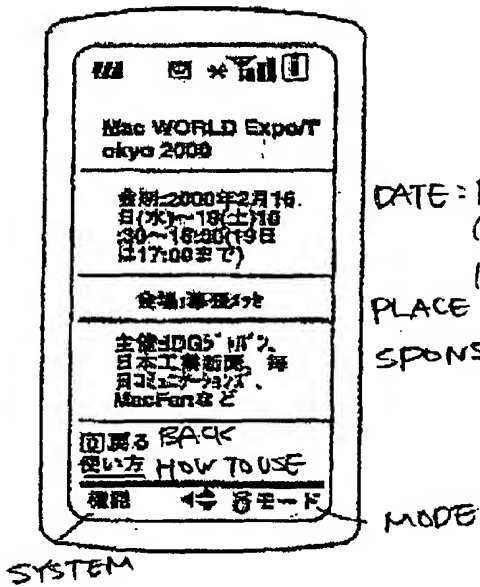 Mac WORLD Expo/T
okyo 2000
会期:2000年2月16
日(水)~19(土)10
:30~18:00(19日
は17:00まで)
会場:幕張メッセ
主催:IDGジャパン、
日本工業新聞、毎
日コミュニケーションズ、
MacFanなど
戻る BACK
使い方 HOW TO USE
確認 モード
DATE:
PLACE
SPONS
MODE
SYSTEM